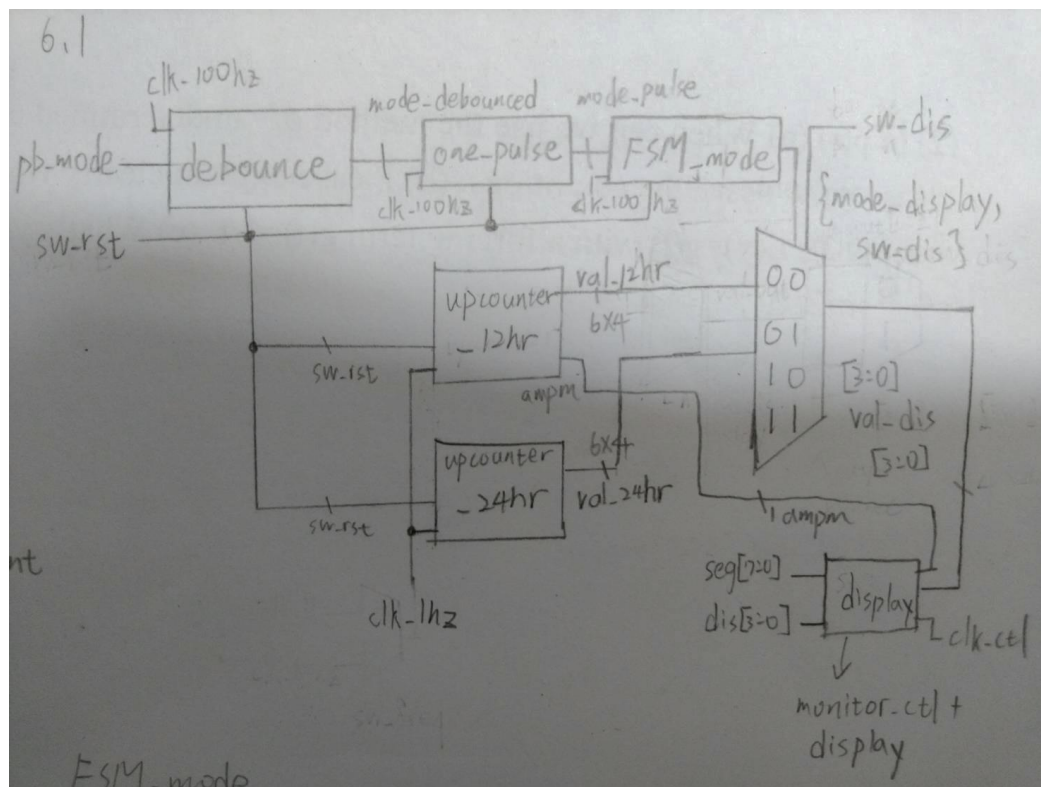 6.1
clk-100hz
mode-debounced
mode-pulse
sw-dis
pb-mode
debounce
one-pulse
FSM-mode
clk-100hz
clk-100hz
{mode-display,
sw-dis}
sw-rst
upcounter
-12hr
val-12hr
6x4
00
01
10
11
sw-rst
ampm
[3:0]
val-dis
[3:0]
upcounter
-24hr
6x4
val-24hr
sw-rst
1 ampm
nt
seg[7:0]
dis[3:0]
display
clk-ctl
clk-1hz
monitor-ctl +
display
FSM-mode